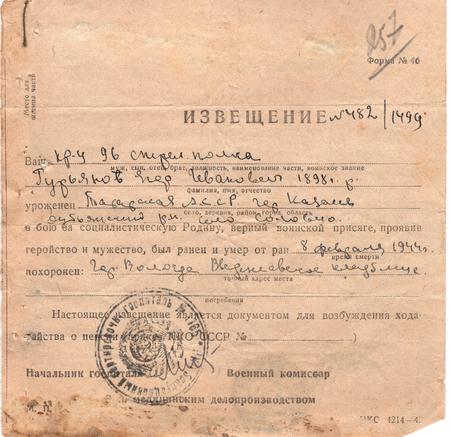 257
Форма № 46
Место для
штампа части
ИЗВЕЩЕНИЕ №482/1499
Ваш кр-ц 96 стрел. полка
муж, сын, отец, брат, должность, наименование части, воинское звание
Гурьянов Егор Иванович 1898 г. р.
фамилия, имя, отчество
уроженец Татарская АССР гор Казань
село, деревня, район, город, область
село
в бою за социалистическую Родину, верный воинской присяге, проявив
геройство и мужество, был ранен и умер от ран 8 февраля 1944г.
время смерти
похоронен: гор. Вологда Введенское кладбище
точный адрес места
погребения
Настоящее извещение является документом для возбуждения хода-
тайства о пенсии (приказ НКО СССР № )
Начальник госпиталя Военный комиссар
М. П. медицинским делопроизводством